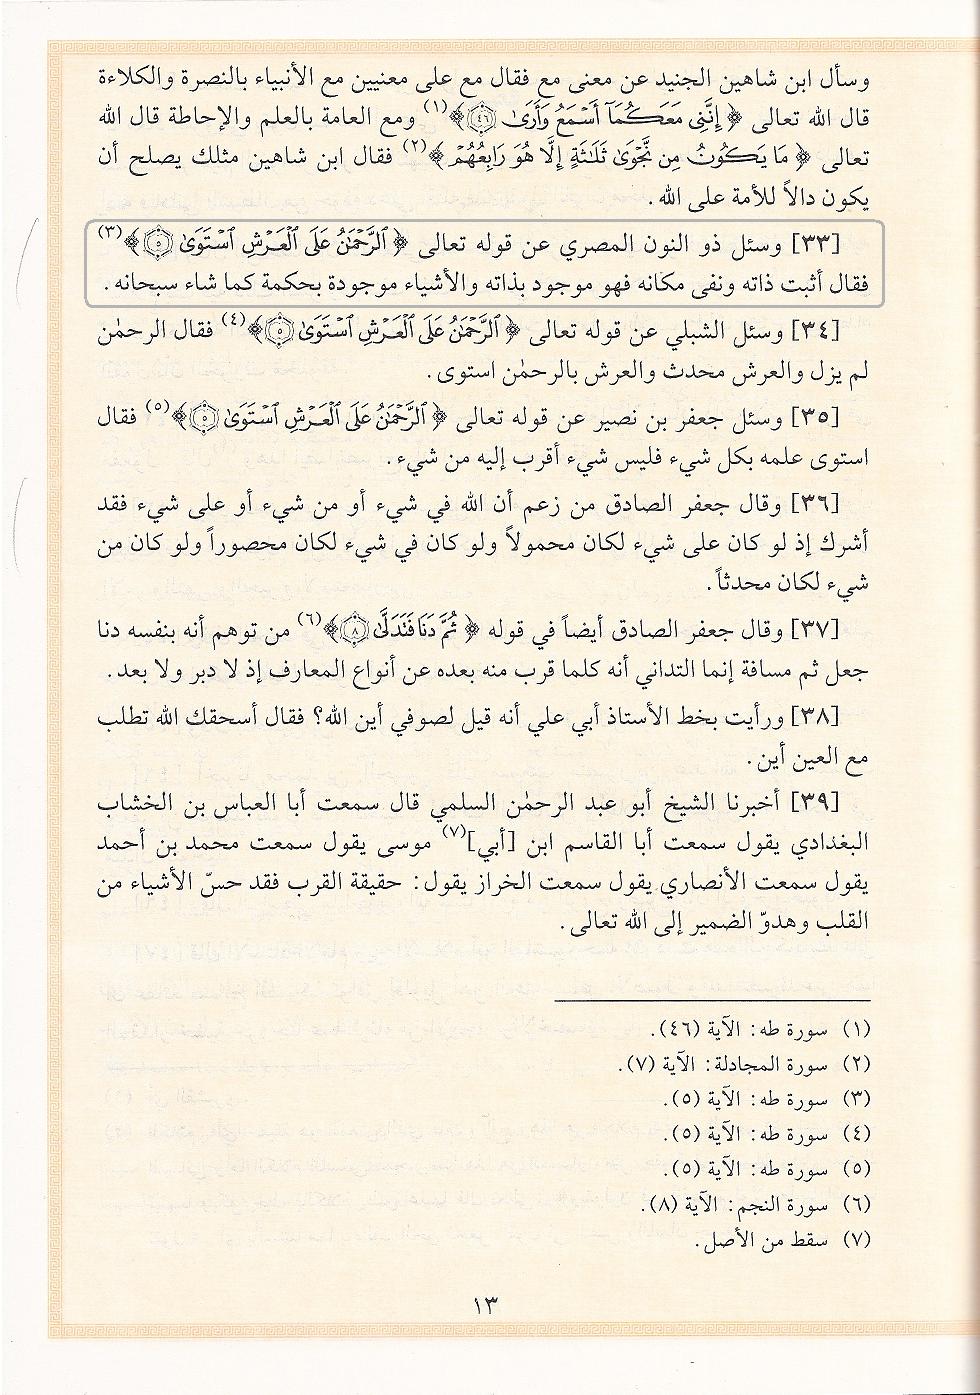 وسأل ابن شاهين الجنيد عن معنى مع فقال مع على معنيين مع الأنبياء بالنصرة والكلاءة
قال الله تعالى ﴿ إِنَّنِي مَعَكُمَآ أَسْمَعُ وَأَرَىٰ ﴿٤٦﴾ ﴾(١) ومع العامة بالعلم والإحاطة قال الله
تعالى ﴿ مَا يَكُونُ مِن نَّجْوَىٰ ثَلَـٰثَةٍ إِلَّا هُوَ رَابِعُهُمْ ﴾(٢) فقال ابن شاهين مثلك يصلح أن
يكون دالاً للأمة على الله .
[٣٣] وسئل ذو النون المصري عن قوله تعالى ﴿ ٱلرَّحْمَـٰنُ عَلَى ٱلْعَرْشِ ٱسْتَوَىٰ ﴿٥﴾ ﴾(٣)
فقال أثبت ذاته ونفى مكانه فهو موجود بذاته والأشياء موجودة بحكمة كما شاء سبحانه .
[٣٤] وسئل الشبلي عن قوله تعالى ﴿ ٱلرَّحْمَـٰنُ عَلَى ٱلْعَرْشِ ٱسْتَوَىٰ ﴿٥﴾ ﴾(٤) فقال الرحمٰن
لم يزل والعرش محدث والعرش بالرحمٰن استوى .
[٣٥] وسئل جعفر بن نصير عن قوله تعالى ﴿ ٱلرَّحْمَـٰنُ عَلَى ٱلْعَرْشِ ٱسْتَوَىٰ ﴿٥﴾ ﴾(٥) فقال
استوى علمه بكل شيء فليس شيء أقرب إليه من شيء .
[٣٦] وقال جعفر الصادق من زعم أن الله في شيء أو من شيء أو على شيء فقد
أشرك إذ لو كان على شيء لكان محمولاً ولو كان في شيء لكان محصوراً ولو كان من
شيء لكان محدثاً .
[٣٧] وقال جعفر الصادق أيضاً في قوله ﴿ ثُمَّ دَنَا فَتَدَلَّىٰ ﴿٨﴾ ﴾(٦) من توهم أنه بنفسه دنا
جعل ثم مسافة إنما التداني أنه كلما قرب منه بعده عن أنواع المعارف إذ لا دبر ولا بعد .
[٣٨] ورأيت بخط الأستاذ أبي علي أنه قيل لصوفي أين الله؟ فقال أسحقك الله تطلب
مع العين أين .
[٣٩] أخبرنا الشيخ أبو عبد الرحمٰن السلمي قال سمعت أبا العباس بن الخشاب
البغدادي يقول سمعت أبا القاسم ابن [أبي](٧) موسى يقول سمعت محمد بن أحمد
يقول سمعت الأنصاري يقول سمعت الخراز يقول: حقيقة القرب فقد حسّ الأشياء من
القلب وهدوّ الضمير إلى الله تعالى .
(١) سورة طه: الآية (٤٦).
(٢) سورة المجادلة: الآية (٧).
(٣) سورة طه: الآية (٥).
(٤) سورة طه: الآية (٥).
(٥) سورة طه: الآية (٥).
(٦) سورة النجم: الآية (٨).
(٧) سقط من الأصل .
١٣